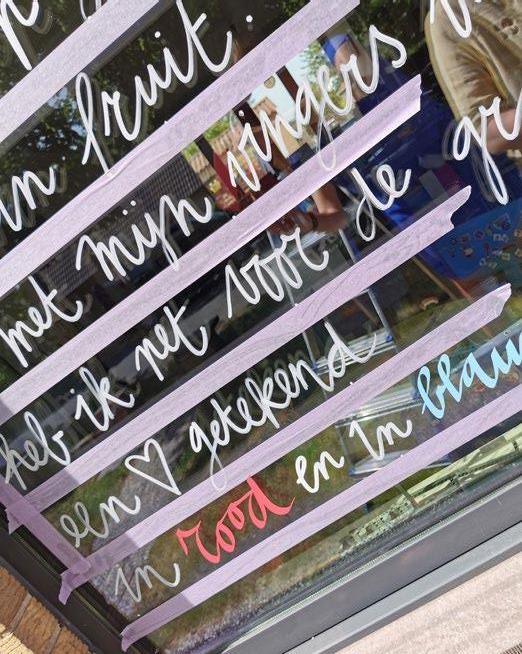 in fruit.
met mijn vingers
heb ik net voor de gr
een ♡ getekend
in rood en in blauw